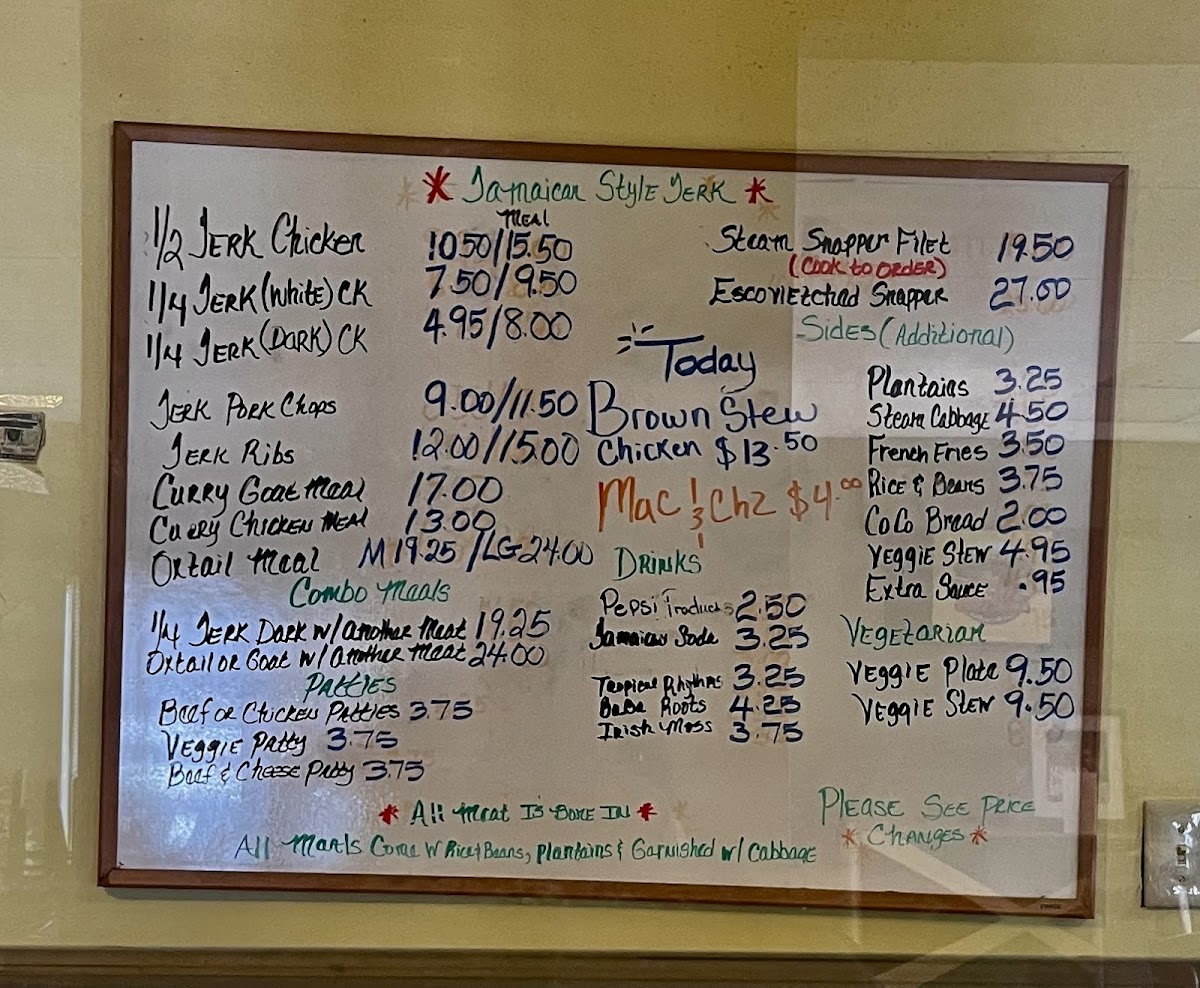 * Jamaican Style Jerk *
Meal
1/2 Jerk Chicken 10.50/15.50
1/4 Jerk (White) CK 7.50/9.50
1/4 Jerk (Dark) CK 4.95/8.00
Jerk Pork Chops 9.00/11.50
Jerk Ribs 12.00/15.00
Curry Goat Meal 17.00
Curry Chicken Meal 13.00
Oxtail Meal M 19.25/LG 24.00
Combo Meals
1/4 Jerk Dark w/ another Meat 19.25
Oxtail or Goat w/ another Meat 24.00
Patties
Beef or Chicken Patties 3.75
Veggie Patty 3.75
Beef & Cheese Patty 3.75
Today
Brown Stew
Chicken $13.50
Mac & Chz $4.00
Drinks
Pepsi Products 2.50
Jamaican Soda 3.25
Tropical Rhythms 3.25
Baba Roots 4.25
Irish Moss 3.75
Steam Snapper Filet 19.50
(Cook to Order)
Escovietchad Snapper 27.00
Sides (Additional)
Plantains 3.25
Steam Cabbage 4.50
French Fries 3.50
Rice & Beans 3.75
CoCo Bread 2.00
Veggie Stew 4.95
Extra Sauce .95
Vegetarian
Veggie Plate 9.50
Veggie Stew 9.50
* All Meat Is Bone In *
All Meals Come w Rice & Beans, Plantains & Garnished w/ Cabbage
Please See Price
* Changes *